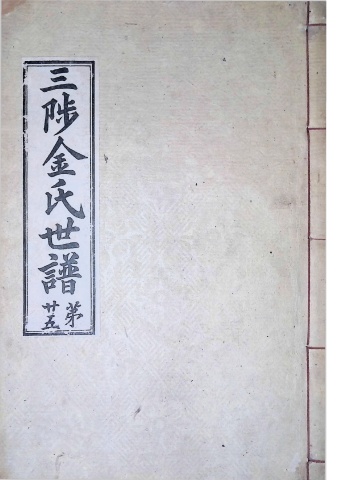 三陟金氏世譜
第廿五